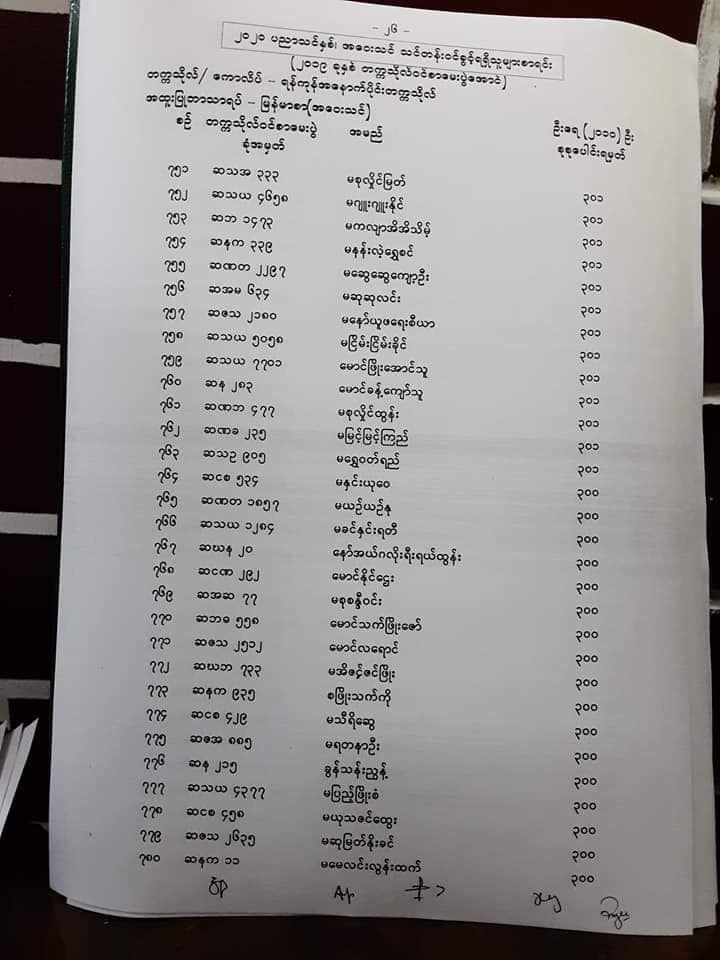 - ၂၆ -
၂၀၂၀ ပညာသင်နှစ်၊ အဝေးသင် သင်တန်းဝင်ခွင့်ရရှိသူများစာရင်း
(၂၀၁၉ ခုနှစ် တက္ကသိုလ်ဝင်စာမေးပွဲအောင်)
တက္ကသိုလ်/ ကောလိပ် - ရန်ကုန်အနောက်ပိုင်းတက္ကသိုလ်
အထူးပြုဘာသာရပ် - မြန်မာစာ(အဝေးသင်)
စဉ် တက္ကသိုလ်ဝင်စာမေးပွဲ အမည် ဦးရေ (၂၁၁၀) ဦး
ခုံအမှတ် စုစုပေါင်းရမှတ်
၇၅၁ ဆသအ ၃၃၃ မစုလှိုင်မြတ် ၃၀၁
၇၅၂ ဆသယ ၄၆၅၈ မဂျူးဂျူးနိုင် ၃၀၁
၇၅၃ ဆဘ ၁၄၇၃ မကလျာအိအိသိမ့် ၃၀၁
၇၅၄ ဆနက ၃၃၉ မနန်းလဲ့ရွှေစင် ၃၀၁
၇၅၅ ဆဏတ ၂၂၉၇ မဆွေဆွေကျော့ဦး ၃၀၁
၇၅၆ ဆအမ ၆၃၄ မဆုဆုလင်း ၃၀၁
၇၅၇ ဆဇသ ၂၁၈၀ မနော်ယူဖရေးစီယာ ၃၀၁
၇၅၈ ဆသယ ၅၀၅၈ မငြိမ်းငြိမ်းခိုင် ၃၀၁
၇၅၉ ဆသယ ၇၇၀၁ မောင်ဖြိုးအောင်သူ ၃၀၁
၇၆၀ ဆန ၂၈၃ မောင်ခန့်ကျော်သူ ၃၀၁
၇၆၁ ဆဏဘ ၄၇၇ မစုလှိုင်ထွန်း ၃၀၁
၇၆၂ ဆဏခ ၂၃၅ မမြင့်မြင့်ကြည် ၃၀၁
၇၆၃ ဆသဥ ၉၀၅ မရွှေဝတ်ရည် ၃၀၁
၇၆၄ ဆငစ ၅၃၄ မနှင်းယုဝေ ၃၀၀
၇၆၅ ဆဏတ ၁၈၅၇ မယဉ်ယဉ်နု ၃၀၀
၇၆၆ ဆသယ ၁၂၈၄ မခင်နှင်းရတီ ၃၀၀
၇၆၇ ဆဃန ၂၀ နော်အယ်ဂလိုးရီးရယ်ထွန်း ၃၀၀
၇၆၈ ဆငဏ ၂၉၂ မောင်နိုင်ဌေး ၃၀၀
၇၆၉ ဆအဆ ၇၇ မစုစန္ဒီဝင်း ၃၀၀
၇၇၀ ဆဘဓ ၅၅၈ မောင်သက်ဖြိုးဇော် ၃၀၀
၇၇၁ ဆဇသ ၂၅၁၂ မောင်လရောင် ၃၀၀
၇၇၂ ဆဃဘ ၇၃၃ မအိဇင့်ဇင်ဖြိုး ၃၀၀
၇၇၃ ဆနက ၉၃၅ စဖြိုးသက်ကို ၃၀၀
၇၇၄ ဆငစ ၄၂၉ မသီရိဆွေ ၃၀၀
၇၇၅ ဆဇအ ၈၈၅ မရတနာဦး ၃၀၀
၇၇၆ ဆန ၂၁၅ ခွန်သန်းညွန့် ၃၀၀
၇၇၇ ဆသယ ၄၃၇၇ မပြည့်ဖြိုးစံ ၃၀၀
၇၇၈ ဆငစ ၄၅၈ မယုသဇင်ထွေး ၃၀၀
၇၇၉ ဆဇသ ၂၆၃၅ မဆုမြတ်နိုးခင် ၃၀၀
၇၈၀ ဆနက ၁၁ မမေလင်းလွန်းထက် ၃၀၀